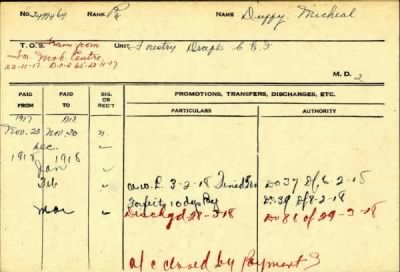 No RANK Pte NAME Duffy, Micheal
T.O.S. Tran from UNIT Forestry Depot C E F
Tor. Mob. Centre
22-11-17. D.O.
M. D. 2
PAID FROM PAID TO SIG. OR REC'T PROMOTIONS, TRANSFERS, DISCHARGES, ETC.
PARTICULARS AUTHORITY
1917
Nov. 23 Nov. 30
Dec.
1918 1918
Jan
Feb 3-2-18 Fined Do 37 of 6-2-18
Forfeit 10 dys Pay Do 39 of 8-2-18
Mar Dischgd 28-3-18 Do 86 of 29-3-18
a/c closed by Payment